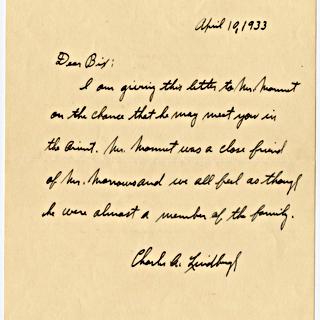 April 10, 1933
Dear Bix:
I am giving this letter to Mr. Monnet
on the chance that he may meet you in
the Orient. Mr. Monnet was a close friend
of Mr. Morrows and we all feel as though
he were almost a member of the family.
Charles A. Lindbergh